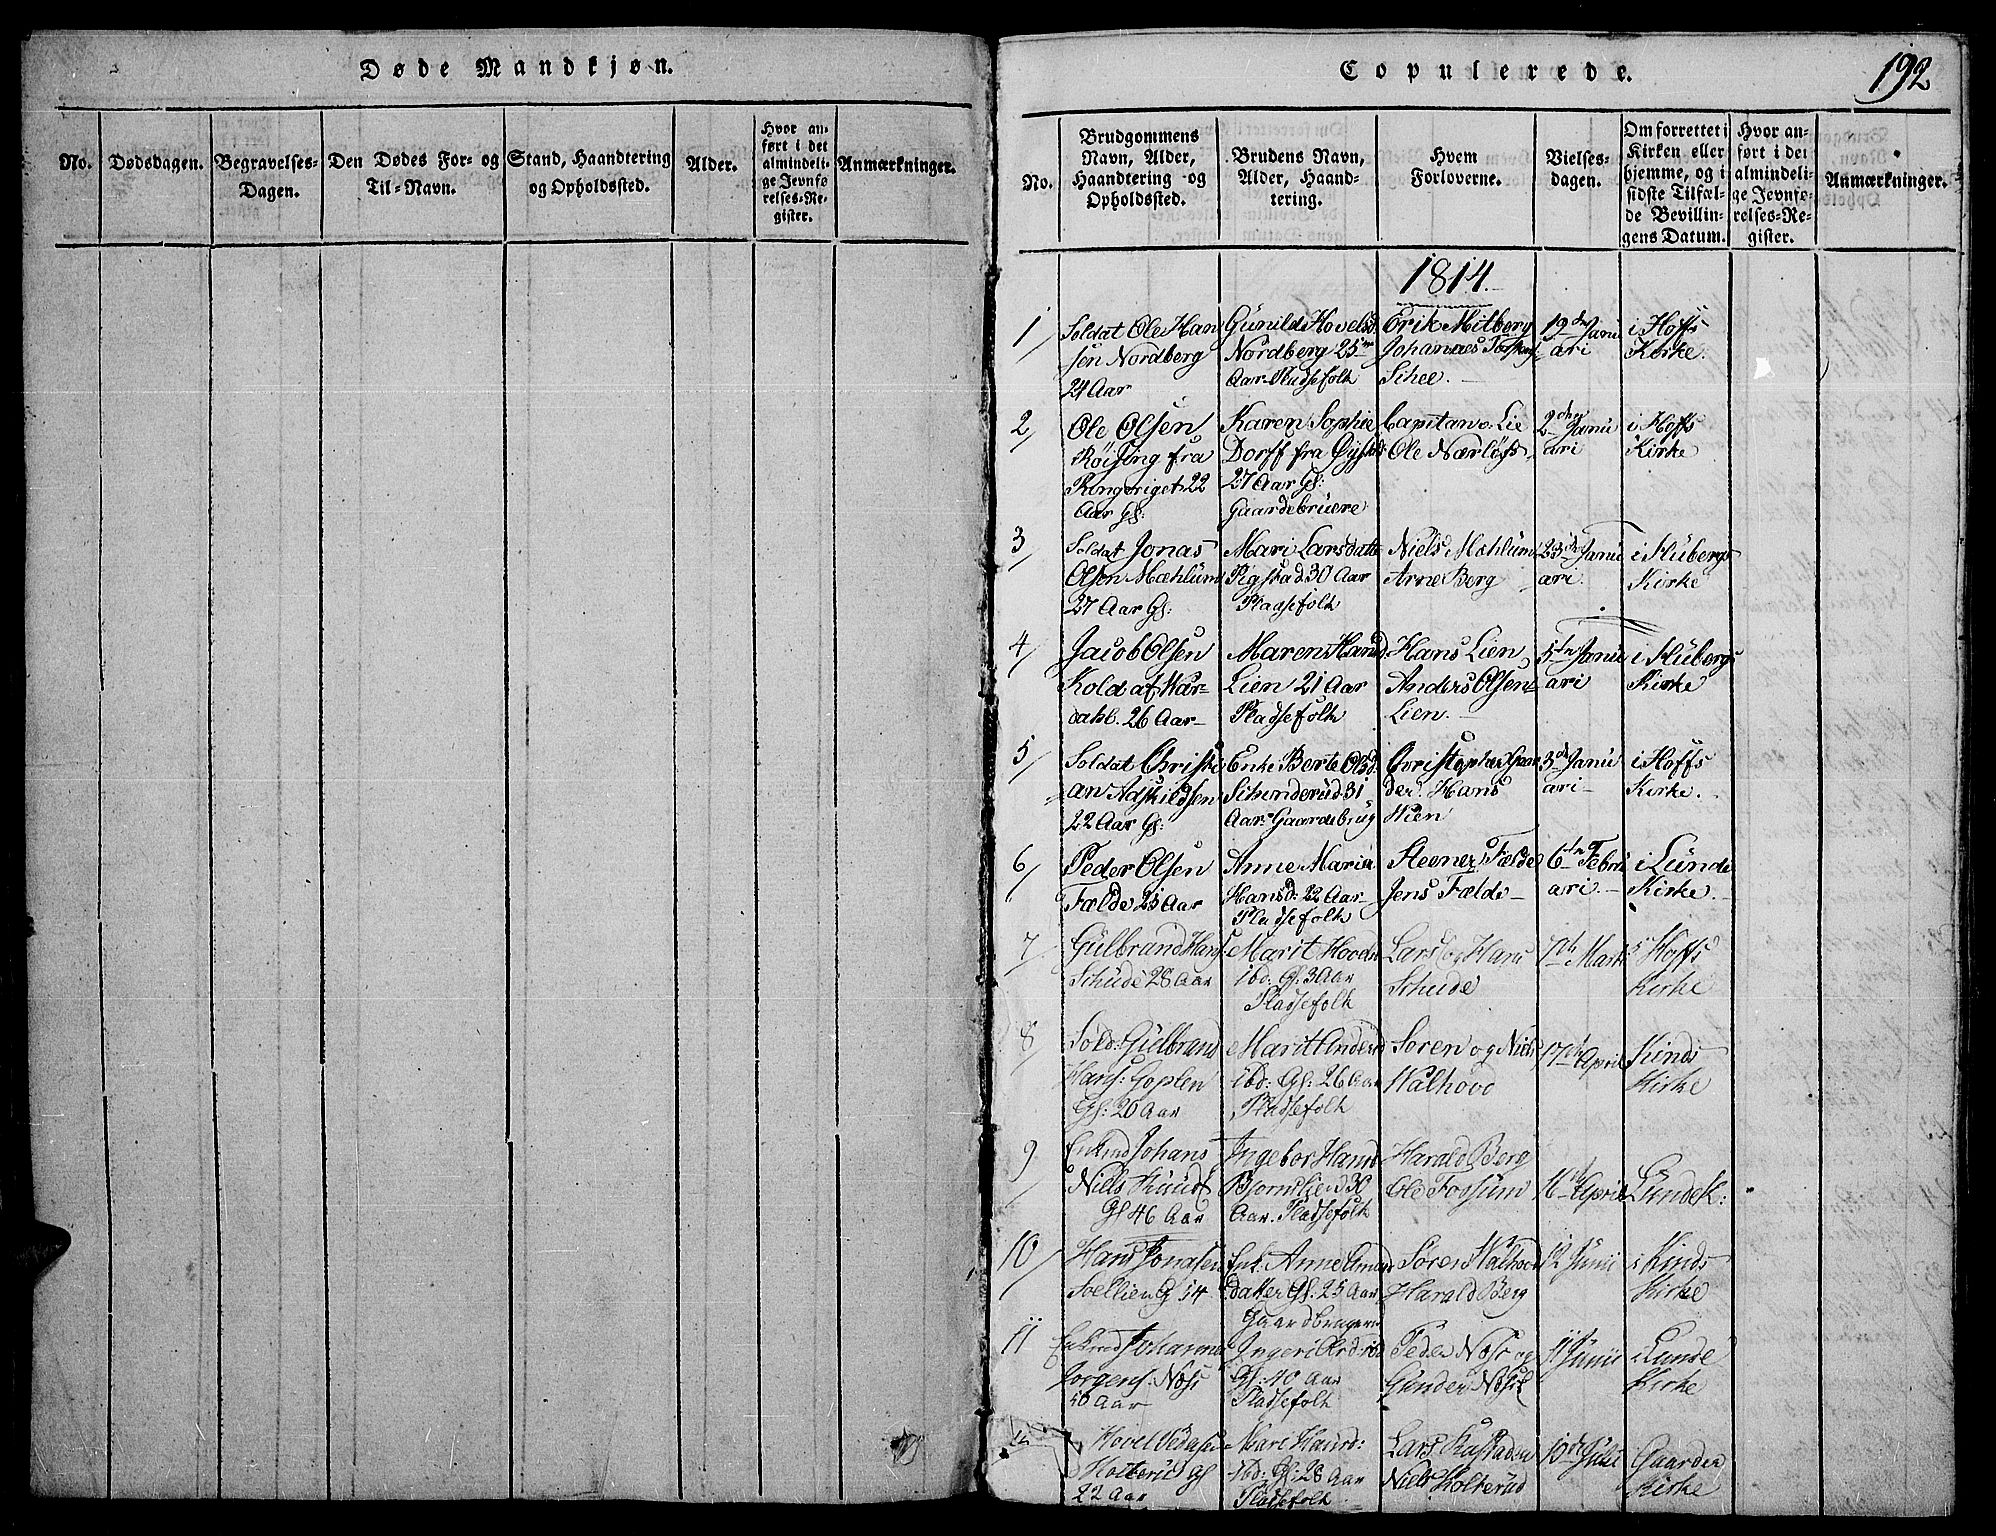 Døde Mandkjøn.
No.
Dødsdagen.
Begravelses-
Dagen.
Den Dødes For- og
Til-Navn.
Stand, Haandtering
og Opholdssted.
Alder.
Hvor an-
ført i det
almindeli-
ge Jevnfø
relses-Re-
gister.
Anmærkninger.
Copulerede.
192
No.
Brudgommens
Navn, Alder,
Haandtering og
Opholdssted.
Brudens Navn,
Alder, Haand-
tering.
Hvem
Forloverne.
Vielses-
dagen.
Om forrettet i
Kirken eller
hjemme, og i
sidste Tilfæl-
de Bevillin-
gens Datum.
Hvor an-
ført i det
almindeli-
ge Jevnfø-
relses-Re-
gister.
Anmærkninger.
1814.
1
Soldat Ole Han
sen Nordberg
24 Aar
Gunild Hovelsd
Nordberg 25
Aar Pladsefolk
Erik Mitberg
Johannes
Schee.
19de Janu
ari
i Hoffs
Kirke.
2
Ole Olsen
Røising fra
Ringeriget 22
Aar Gl:
Karen Sophie
Dorff fra
27 Aar Gl:
Gaardebruere
Capitain v. Lie
Ole Nærløs
2den Janu
ari
i Hoffs
Kirke
3
Soldat Jonas
Olsen Mæhlum
27 Aar Gl:
Mari Larsdatte
Pigstad 30 Aar
Pladsefolk
Niels Mæhlum
Arne Berg
23de Janu
ari.
i Flubergs
Kirke
4
Jacob Olsen
Kold af War-
dahl. 26 Aar
Maren Hansd
Lien 21 Aar
Pladsefolk
Hans Lien
Anders Olsen
Lien.
5te Janu
ari
i Flubergs
Kirke
5
Soldat Christi
an Adskildsen
22 Aar Gl:
Enke Berte Olsd:
Schinderud 31
Aar. Gaardebrug
Christopher
der. Hans
Wien
3de Janu
ari
i Hoffs
Kirke.
6
Peder Olsen
Fælde 25 Aar
Anne Maria
Hansd: 22 Aar
Pladsefolk
Steener Fælde
Jens Fælde
6te Febru
ari.
i Lunde
Kirke.
7
Gulbrand Hans
Schude 28 Aar
Marit
ibd: Gl. 3 Aar
Pladsefolk
Lars og Hans
Schude
7de Marts
i Hoffs
Kirke
8
Sold: Gulbrand
Hans: Goplen
Gl: 20 Aar
Marit Andersd
ibd: Gl: 26 Aar
Pladsefolk
Søren og Niels
Walhovd
17de April
Kinds
Kirke
9
Enkmd Johans
Niels
Gl 46 Aar
Ingebor Hansd
Bjørnslie 30
Aar. Pladsefolk
Harald Berg
Ole Fossum
16de April
Lunde K:
10
Hans Jonassen
Enk: Anne
datter Gl: 25 Aar
Gaardbrugere
Søren Walhovd
Harald Berg
12 Junii
i Kinds
Kirke
11
Enkmd Johannes
Jørgens:
50 Aar
Ingeri
Gl: 40 Aar
Pladsefolk
Peder og
Gunder
11 Junii
i Lunde
Kirke
12
Hovel
Gl
22 Aar
Mari Hansd:
ibd: Gl: 28 Aar
Pladsefolk
Lars
Niels Holterud
10de Juli
Gaarder
Kirke